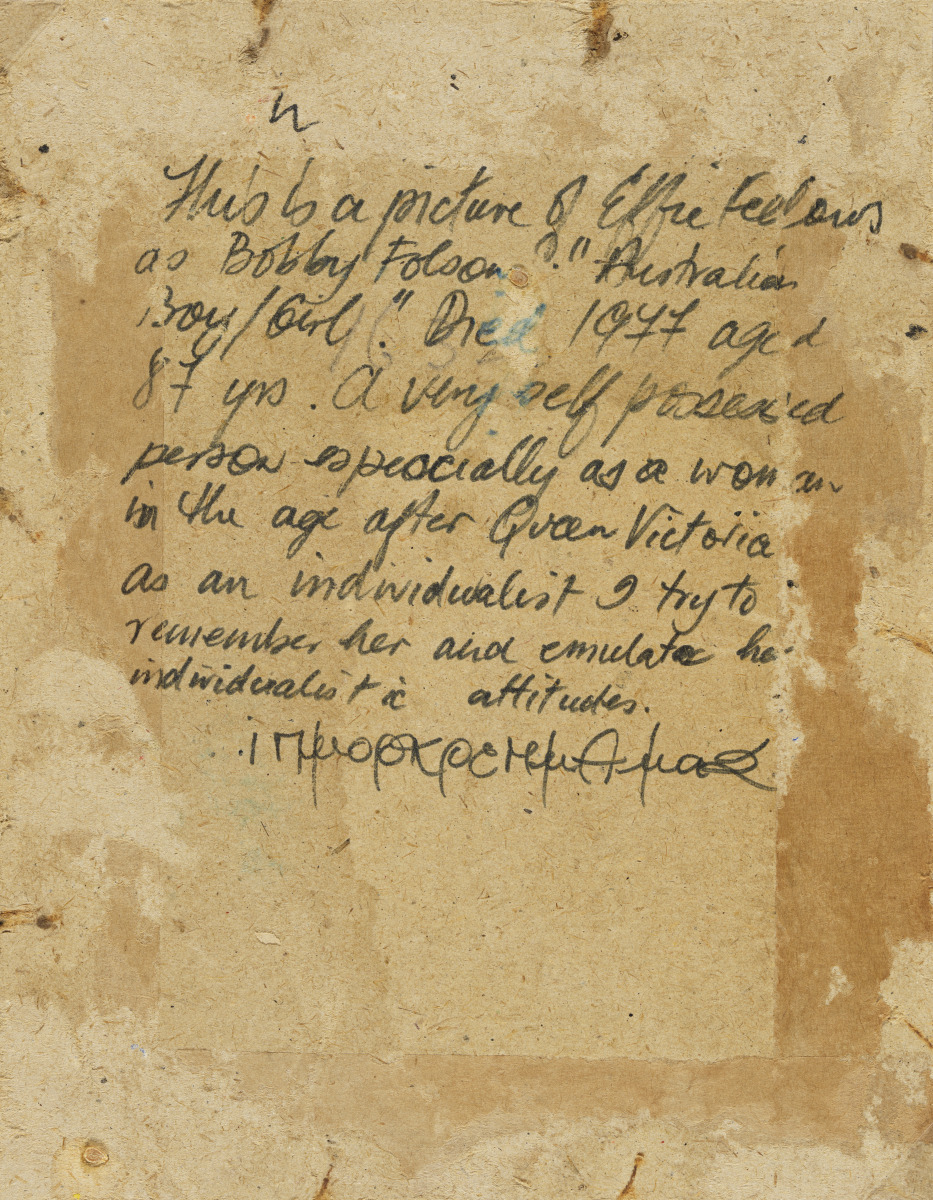 n
This is a picture of Effie Fellows
as Bobby Folson ?." Australian
Boy/Girl." Died 1977 aged
87 yrs. A very self possessed
person espescially as a woman
in the age after Queen Victoria
as an individualist I try to
remember her and emulate her
individualistic attitudes.